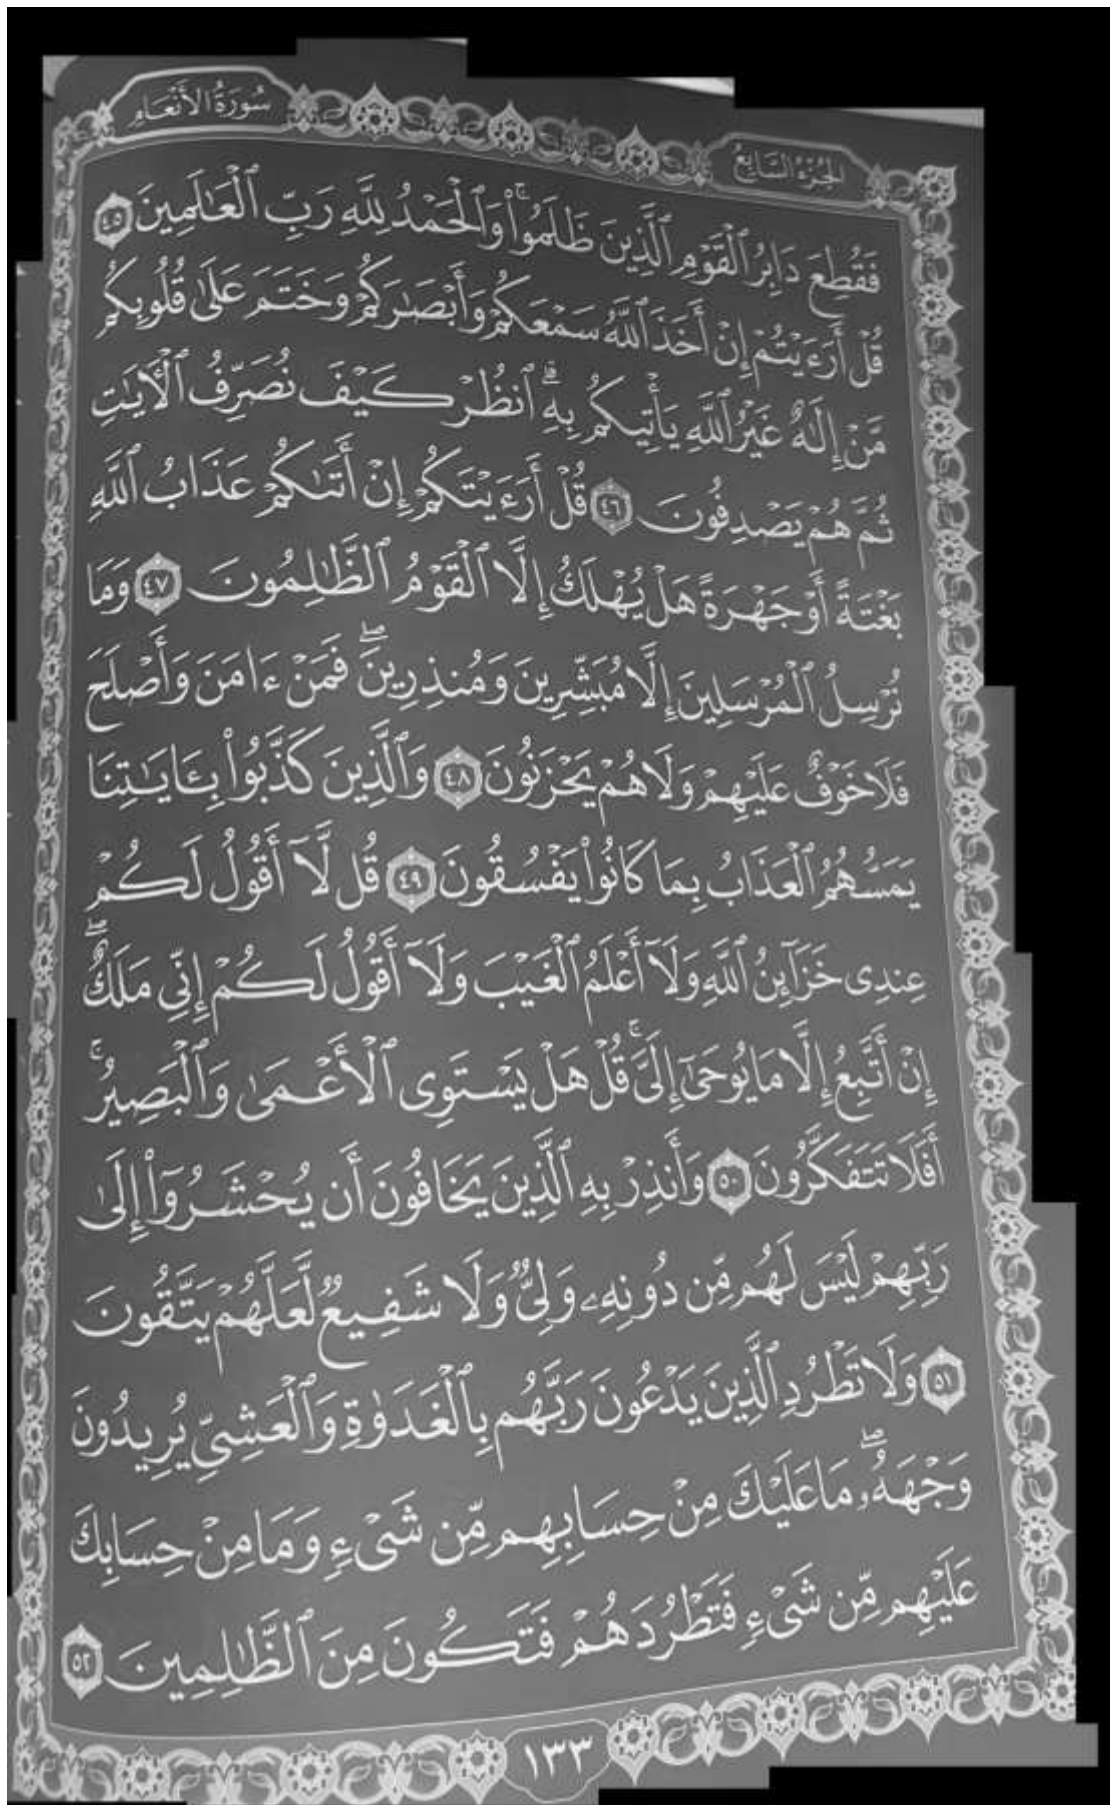 الجزء السابع
سورة الأنعام
فَقُطِعَ دَابِرُ ٱلْقَوْمِ ٱلَّذِينَ ظَلَمُوا۟ ۚ وَٱلْحَمْدُ لِلَّهِ رَبِّ ٱلْعَٰلَمِينَ ٤٥
قُلْ أَرَءَيْتُمْ إِنْ أَخَذَ ٱللَّهُ سَمْعَكُمْ وَأَبْصَٰرَكُمْ وَخَتَمَ عَلَىٰ قُلُوبِكُم
مَّنْ إِلَٰهٌ غَيْرُ ٱللَّهِ يَأْتِيكُم بِهِ ۗ ٱنظُرْ كَيْفَ نُصَرِّفُ ٱلْءَايَٰتِ
ثُمَّ هُمْ يَصْدِفُونَ ٤٦ قُلْ أَرَءَيْتَكُمْ إِنْ أَتَىٰكُمْ عَذَابُ ٱللَّهِ
بَغْتَةً أَوْ جَهْرَةً هَلْ يُهْلَكُ إِلَّا ٱلْقَوْمُ ٱلظَّٰلِمُونَ ٤٧ وَمَا
نُرْسِلُ ٱلْمُرْسَلِينَ إِلَّا مُبَشِّرِينَ وَمُنذِرِينَ ۖ فَمَنْ ءَامَنَ وَأَصْلَحَ
فَلَا خَوْفٌ عَلَيْهِمْ وَلَا هُمْ يَحْزَنُونَ ٤٨ وَٱلَّذِينَ كَذَّبُوا۟ بِـَٔايَٰتِنَا
يَمَسُّهُمُ ٱلْعَذَابُ بِمَا كَانُوا۟ يَفْسُقُونَ ٤٩ قُل لَّآ أَقُولُ لَكُمْ
عِندِى خَزَآئِنُ ٱللَّهِ وَلَآ أَعْلَمُ ٱلْغَيْبَ وَلَآ أَقُولُ لَكُمْ إِنِّى مَلَكٌ ۖ
إِنْ أَتَّبِعُ إِلَّا مَا يُوحَىٰٓ إِلَىَّ ۚ قُلْ هَلْ يَسْتَوِى ٱلْأَعْمَىٰ وَٱلْبَصِيرُ ۚ
أَفَلَا تَتَفَكَّرُونَ ٥٠ وَأَنذِرْ بِهِ ٱلَّذِينَ يَخَافُونَ أَن يُحْشَرُوٓا۟ إِلَىٰ
رَبِّهِمْ لَيْسَ لَهُم مِّن دُونِهِۦ وَلِىٌّ وَلَا شَفِيعٌ لَّعَلَّهُمْ يَتَّقُونَ
٥١ وَلَا تَطْرُدِ ٱلَّذِينَ يَدْعُونَ رَبَّهُم بِٱلْغَدَوٰةِ وَٱلْعَشِىِّ يُرِيدُونَ
وَجْهَهُۥ ۖ مَا عَلَيْكَ مِنْ حِسَابِهِم مِّن شَىْءٍ وَمَا مِنْ حِسَابِكَ
عَلَيْهِم مِّن شَىْءٍ فَتَطْرُدَهُمْ فَتَكُونَ مِنَ ٱلظَّٰلِمِينَ ٥٢
١٣٣